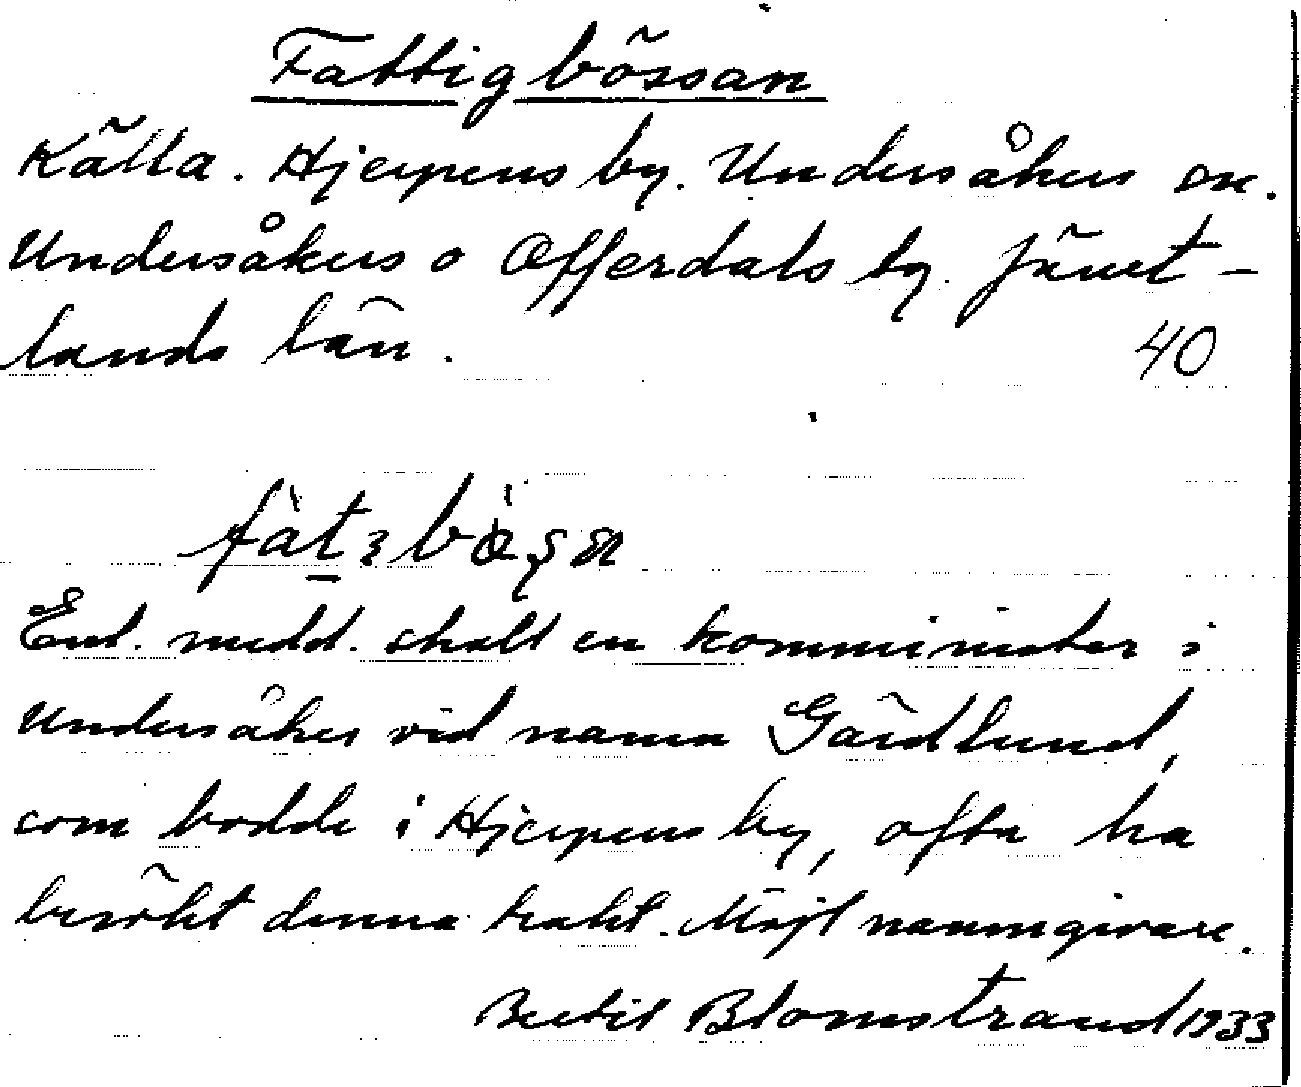 Fattigbössan
Källa. Hjerpens by. Undersåkers sn.
Undersåkers o Offerdals tg. Jämt-
lands län.
40
Enl. medd. skall en komminister i
Undersåker vid namn Gärdlund,
som bodde i Hjerpens by, ofta ha
besökt denna trakt. Möjl namngivare.
Bertil Blomstrand 1933